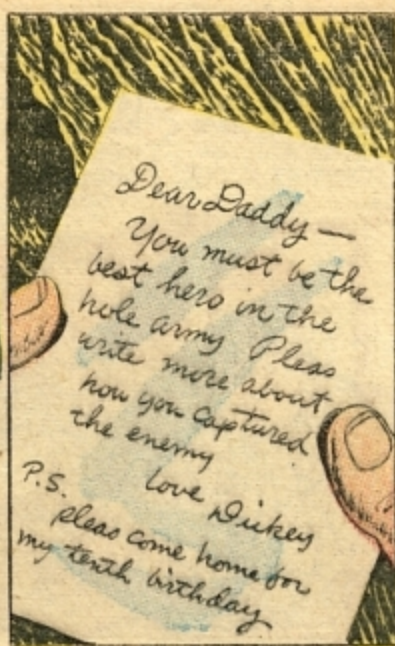 Dear Daddy —
You must be the
best hero in the
hole army Pleas
write more about
how you captured
the enemy
love Dickey
P.S.
pleas come home for
my tenth birthday